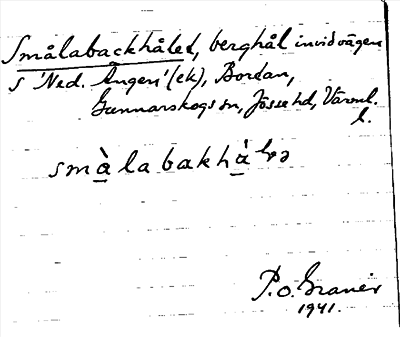 Smålabackhålet, berghål invid vägen
s 'Ned. Ängen' (ek), Bordan,
Gunnarskogs sn, Jösse hd, Värml.
l.
smàlabakhàlə
P.O. Granér
1941.